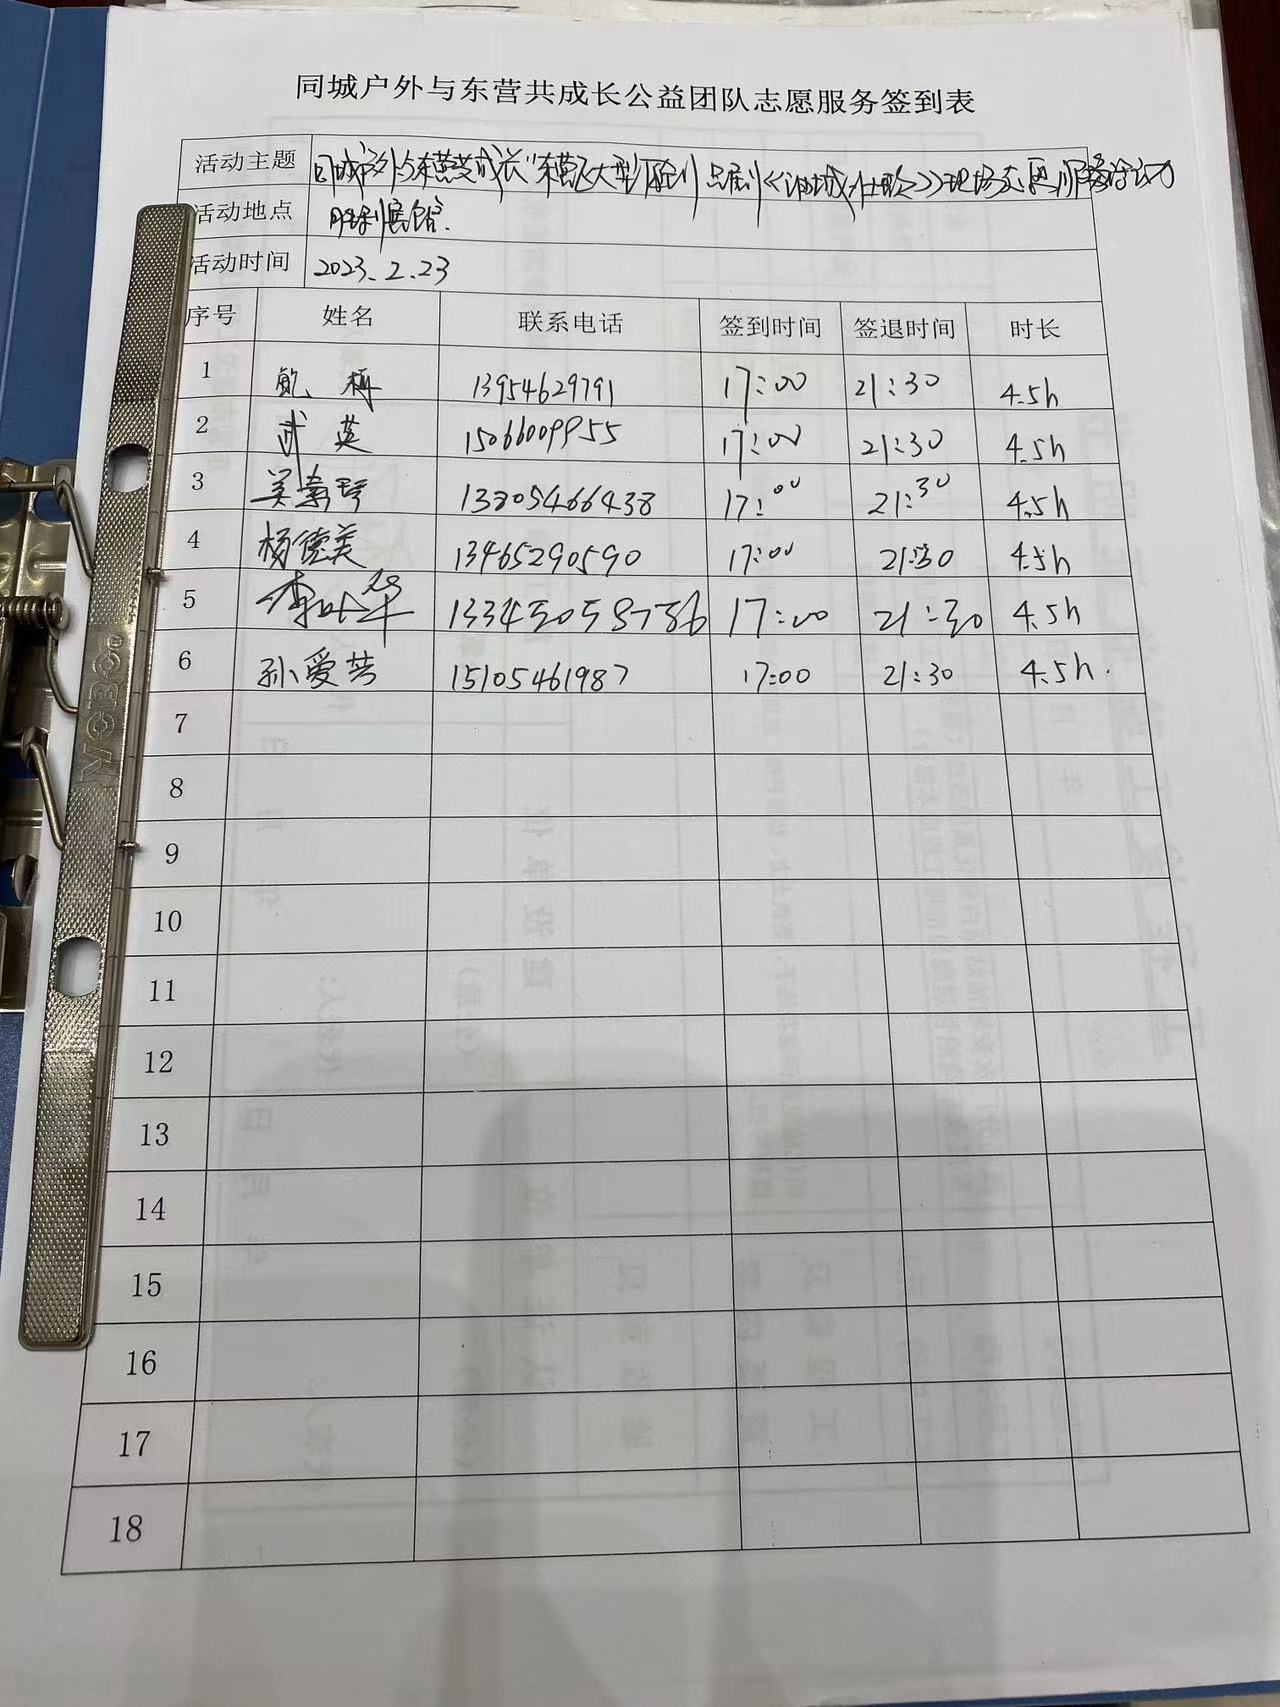 同城户外与东营共成长公益团队志愿服务签到表
活动主题 同城户外与东营共成长"东营区大型 吕剧《油城壮歌》现场志愿服务活动
活动地点 胜利宾馆.
活动时间 2023.2.23
序号 姓名 联系电话 签到时间 签退时间 时长
1 13954629791 17:00 21:30 4.5h
2 武英 15066009955 17:00 21:30 4.5h
3 吴素琴 13805466438 17:00 21:30 4.5h
4 杨德美 13465290590 17:00 21:30 4.5h
5 17:00 21:30 4.5h
6 孙爱芳 15105461987 17:00 21:30 4.5h.
7
8
9
10
11
12
13
14
15
16
17
18